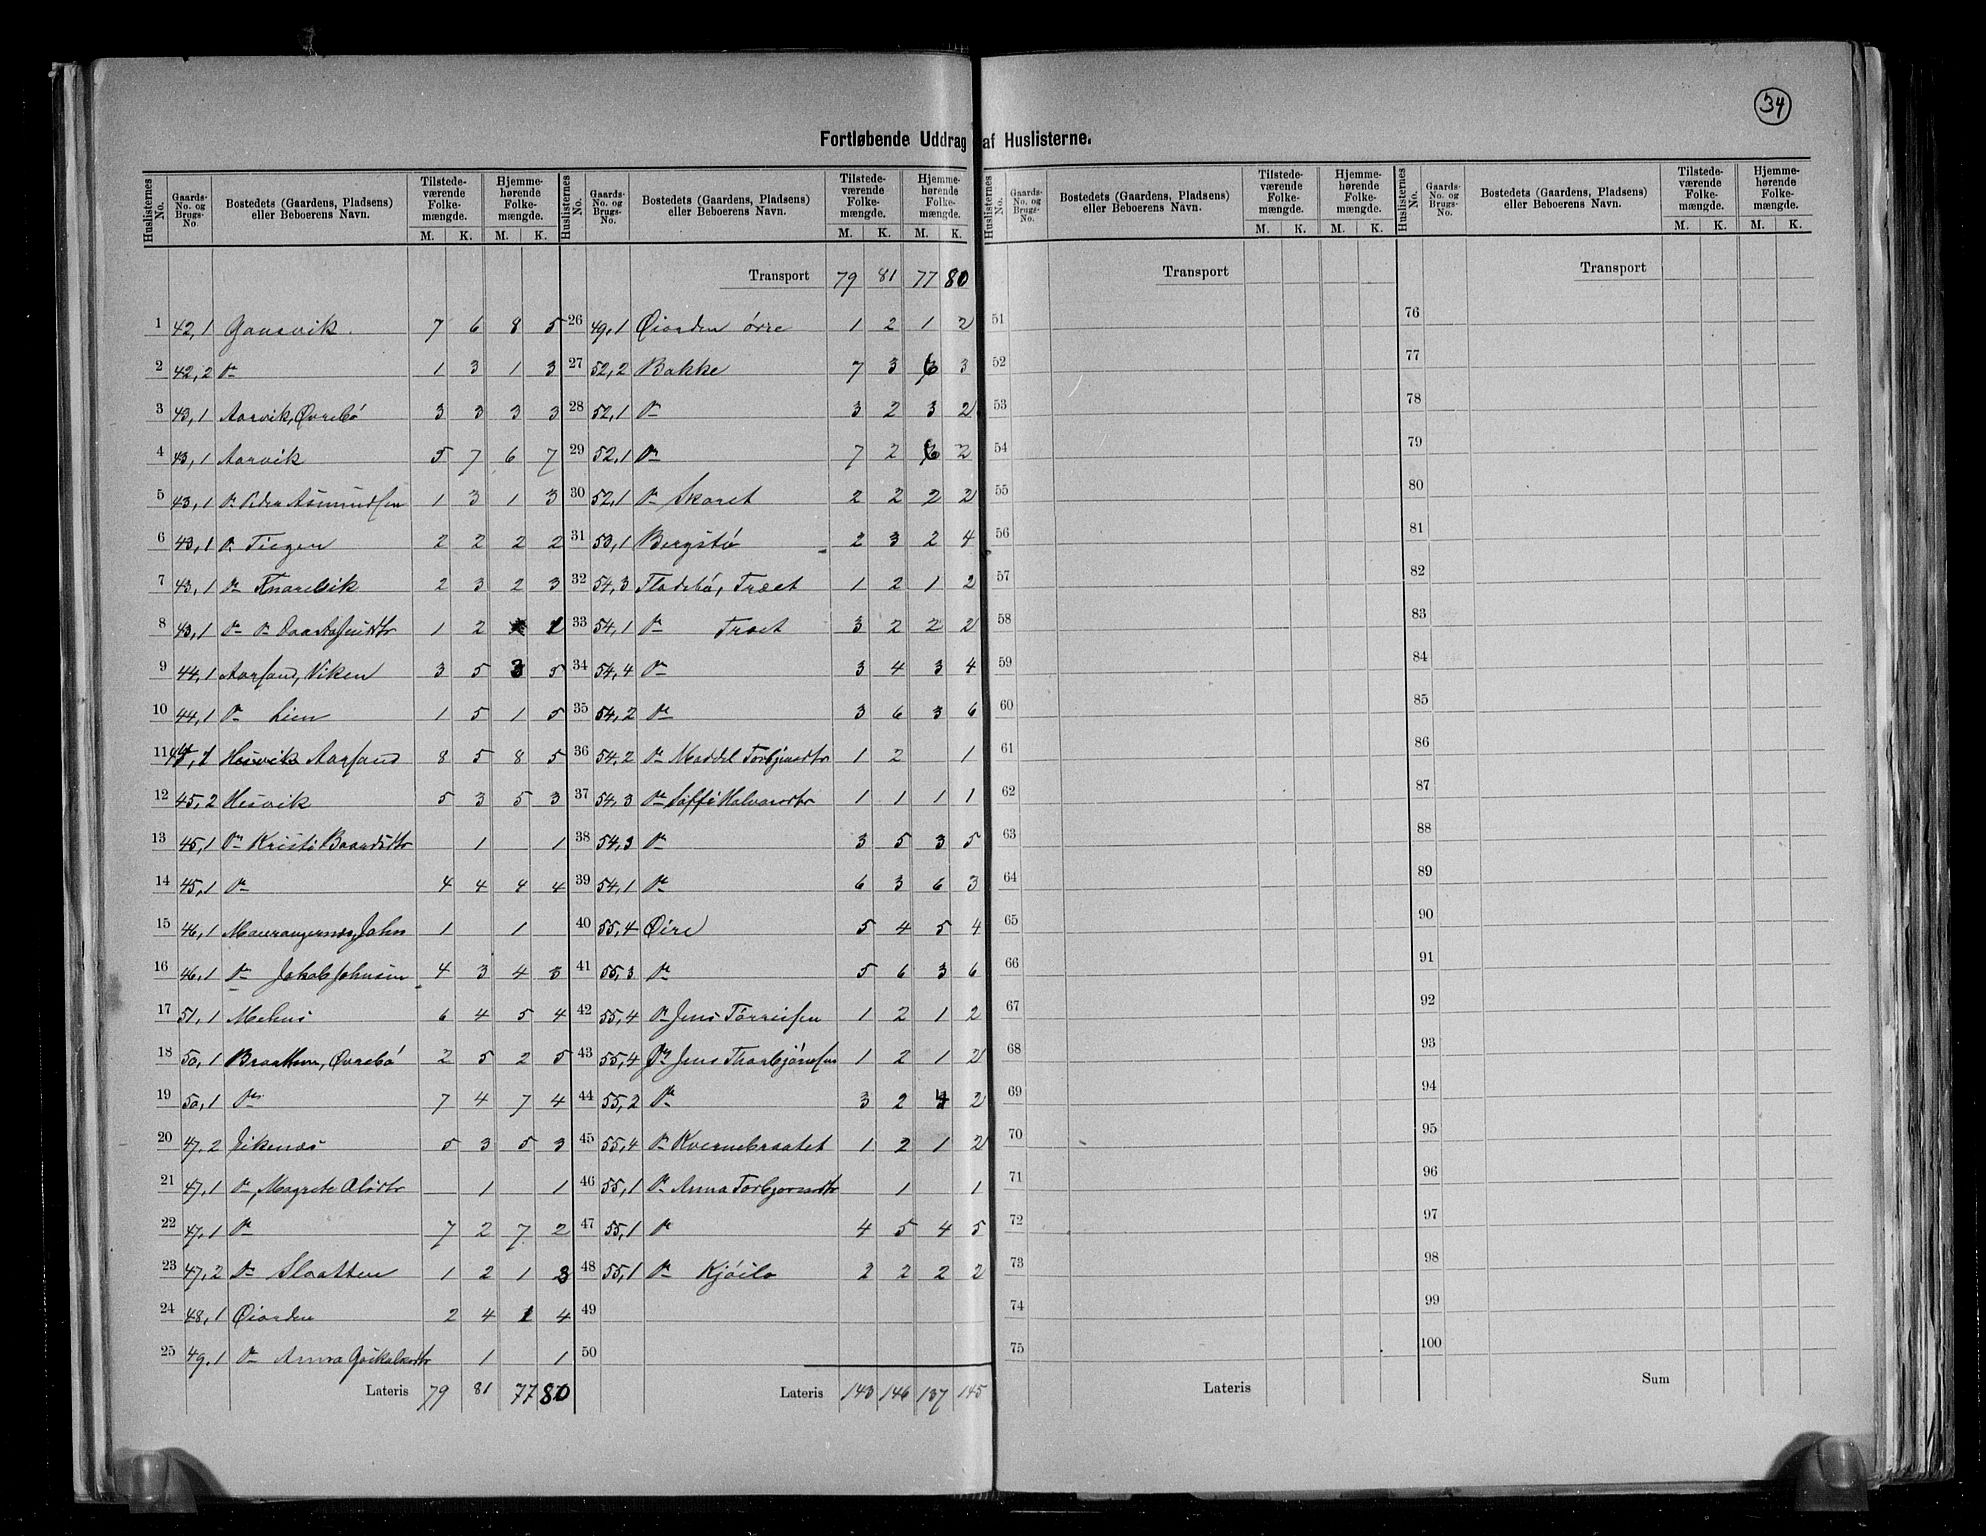 34
Fortløbende Uddrag af Huslisterne.
Huslisternes No. Gaards-No. og Brugs-No. Bostedets (Gaardens, Pladsens) eller Beboerens Navn. Tilstede-værende Folke-mængde. M. K. Hjemme-hørende Folke-mængde. M. K.
1 42,1 Gausvik 7 6 8 5
2 42,2 Do 1 3 1 3
3 43,1 Aarvik, Øvrebø 3 3 3 3
4 43,1 Aarvik 5 7 6 7
5 43,1 Do Peder Asmundsen 1 3 1 3
6 43,1 Do Teigen 2 2 2 2
7 43,1 Do Knarevik 2 3 2 3
8 43,1 Do Do 1 2
9 44,1 Aarsand, Viken 3 5 3 5
10 44,1 Do Lien 1 5 1 5
11 Aarsand 8 5 8 5
12 45,2 Hesvik 5 3 5 3
13 45,1 Do Kristi Baardsdtr 1 1
14 45,1 Do 4 4 4 4
15 46,1 Maurangernes, John 1 1
16 46,1 Do Jakob Johnsen 4 3 4 3
17 51,1 Mehus 6 4 5 4
18 50,1 Braathun, Øvrebø 2 5 2 5
19 50,1 Do 7 4 7 4
20 47,2 Eikenæs 5 3 5 3
21 47,1 Do Magrete 1 1
22 47,1 Do 7 2 7 2
23 47,2 Do Slaatten 1 2 1 3
24 48,1 Øiarden 2 4 1 4
25 49,1 Do Anna 1 1
Lateris 79 81 77 80
Huslisternes No. Gaards-No. og Brugs-No. Bostedets (Gaardens, Pladsens) eller Beboerens Navn. Tilstede-værende Folke-mængde. M. K. Hjemme-hørende Folke-mængde. M. K.
Transport 79 81 77 80
26 49,1 Øiarden øvre 1 2 1 2
27 52,2 Bakke 7 3 6 3
28 52,1 Do 3 2 3 2
29 52,1 Do 7 2 6 2
30 52,1 Do Skaret 2 2 2 2
31 53,1 Bergstø 2 3 2 4
32 54,3 Fladebø, Træet 1 2 1 2
33 54,1 Do Træet 3 2 2 2
34 54,4 Do 3 4 3 4
35 54,2 Do 3 6 3 6
36 54,2 Do Maddel 1 2 1
37 54,3 Do Halvarsdtr 1 1 1 1
38 54,3 Do 3 5 3 5
39 54,1 Do 6 3 6 3
40 55,4 Øire 5 4 5 4
41 55,3 Do 5 6 3 6
42 55,4 Do Jens 1 2 1 2
43 55,4 Do Jens Thorbjørnsen 1 2 1 2
44 55,2 Do 3 2 2
45 55,4 Do Kvernebraatet 1 2 1 2
46 55,1 Do Anna Torbjørnsdtr 1 1
47 55,1 Do 4 5 4 5
48 55,1 Do Kjøilo 2 2 2 2
49
50
Lateris 143 146 137 145
Huslisternes No. Gaards-No. og Brugs-No. Bostedets (Gaardens, Pladsens) eller Beboerens Navn. Tilstede-værende Folke-mængde. M. K. Hjemme-hørende Folke-mængde. M. K.
Transport
51
52
53
54
55
56
57
58
59
60
61
62
63
64
65
66
67
68
69
70
71
72
73
74
75
Lateris
Huslisternes No. Gaards-No. og Brugs-No. Bostedets (Gaardens, Pladsens) eller Beboerens Navn. Tilstede-værende Folke-mængde. M. K. Hjemme-hørende Folke-mængde. M. K.
Transport
76
77
78
79
80
81
82
83
84
85
86
87
88
89
90
91
92
93
94
95
96
97
98
99
100
Sum